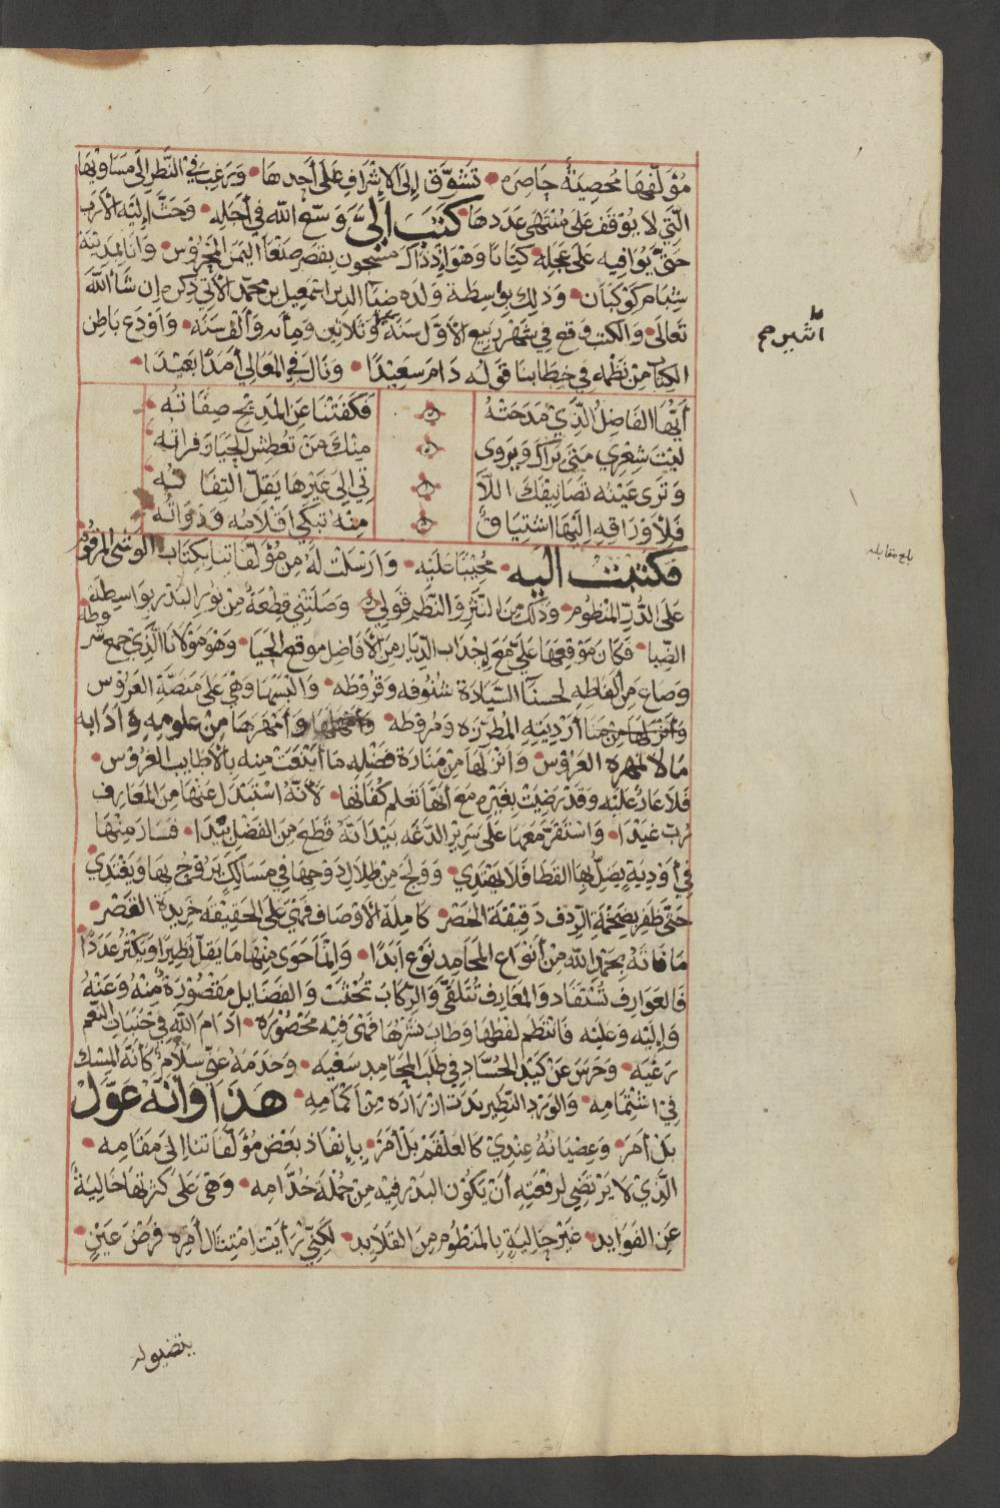 مؤلفها محصية حاصره • تشوق إلى الإشراف على أحدها • ويرغب في النظر إلى مساويها
التي لا يوقف على منتهى عددها • كتب إليّ وسع الله في أجله • وحث إليه الأرب
حتى يوافيه على عجله • كتابا وهو إذ ذاك مسجون بقصر صنعا اليمن المحروس • وانا بمدينة
شبام كوكبان • وذلك بواسطة ولده ضيا الدين اسمعيل بن محمد الآتي ذكره إن شا الله
تعالى • والكتب وقع في شهر ربيع الأول سنة وثلاثين ومأىه وألف سنه • واودع باطن
الكتاب من نظمه في خطابنا قوله دام سعيدا • ونال في المعالي أمدا بعيدا •
أيها الفاضل الذي مدحته فكفتنا عن المديح صفاته •
ليت شعري متى يراك ويروى منك من تعطش الحيا رفراته
وترى عينه تصانيفك اللا تي إلى غيرها يقل التفاته
فلأوراقه إليها اشتياق منه تبكي اقلامه ودواته
فكتبت اليه • مجيبا عليه • وارسلت له من مؤلفاتنا بكتاب الوشي المرقوم
على الدر المنظوم • وذلك من النثر والنظم قولي • وصلتني قطعة من نور البدر بواسطة
الضيا • فكان موقعها علي مع إجداب الديار من الأفاضل موقع الحيا • وهو مولانا الذي جمع
وصاغ من ألفاظه لحسنا السيادة شنوفه وقروطه • والبسها وهي على منصة العروس
من أردينه المطرزه ومروطه • وأمهرها من علومه وآدابه
مالا لمهره العروس • وانزلها من منارة فضله ما أينعت منه بالأطايب الغروس •
فلا عار عليه وقد رضيت بغيره مع أنها تعلم كفائها • لأنه استبدل عنها من المعارف
برب غيدا • واستقر معها على سرير الدعه بيد انه قطع من الفضل بيدا • فسار منها
في أودية يضل بها القطا فلا يهتدي • وولج من ظلال دوحها في مسالك يروح بها ويغتدي
حتى ظفر بضخمة الردف دقيقة الخصر • كاملة الأوصاف فهي على الحقيقه خريدة القصر •
ما فاته بحمد الله من أنواع المحامد نوع ابدا • وانما حوى منها ما يقل نظيرا ويكثر عددا
فالعوارف تستفاد والمعارف تتلقى والركاب تحتث والفضايل مقصورة منه وعنه
وإليه وعليه فانتظم لفظها وطاب نشرها فهي فيه محصوره • ادام الله في جنبات النعم
رعيه • وحرس عن كيد الحساد في طلب المحامد سعيه • وخدمه عني سلام كأنه المسك
في اشتمامه • والورد النظير بدت ازراره من أكمامه • هذا وانه عوّل
بل أمر • وعصيانه عندي كالعلقم بل أمر • بإنفاذ بعض مؤلفاتنا إلى مقامه •
الذي لا يرتضى لرفعته أن يكون البدر فيه من جملة خدامه • وهي على كثرتها خالية
عن الفوايد • غير حالية بالمنظوم من القلايد • لكني رأيت امتثال أمره فرض عين •
بلغ مقابله